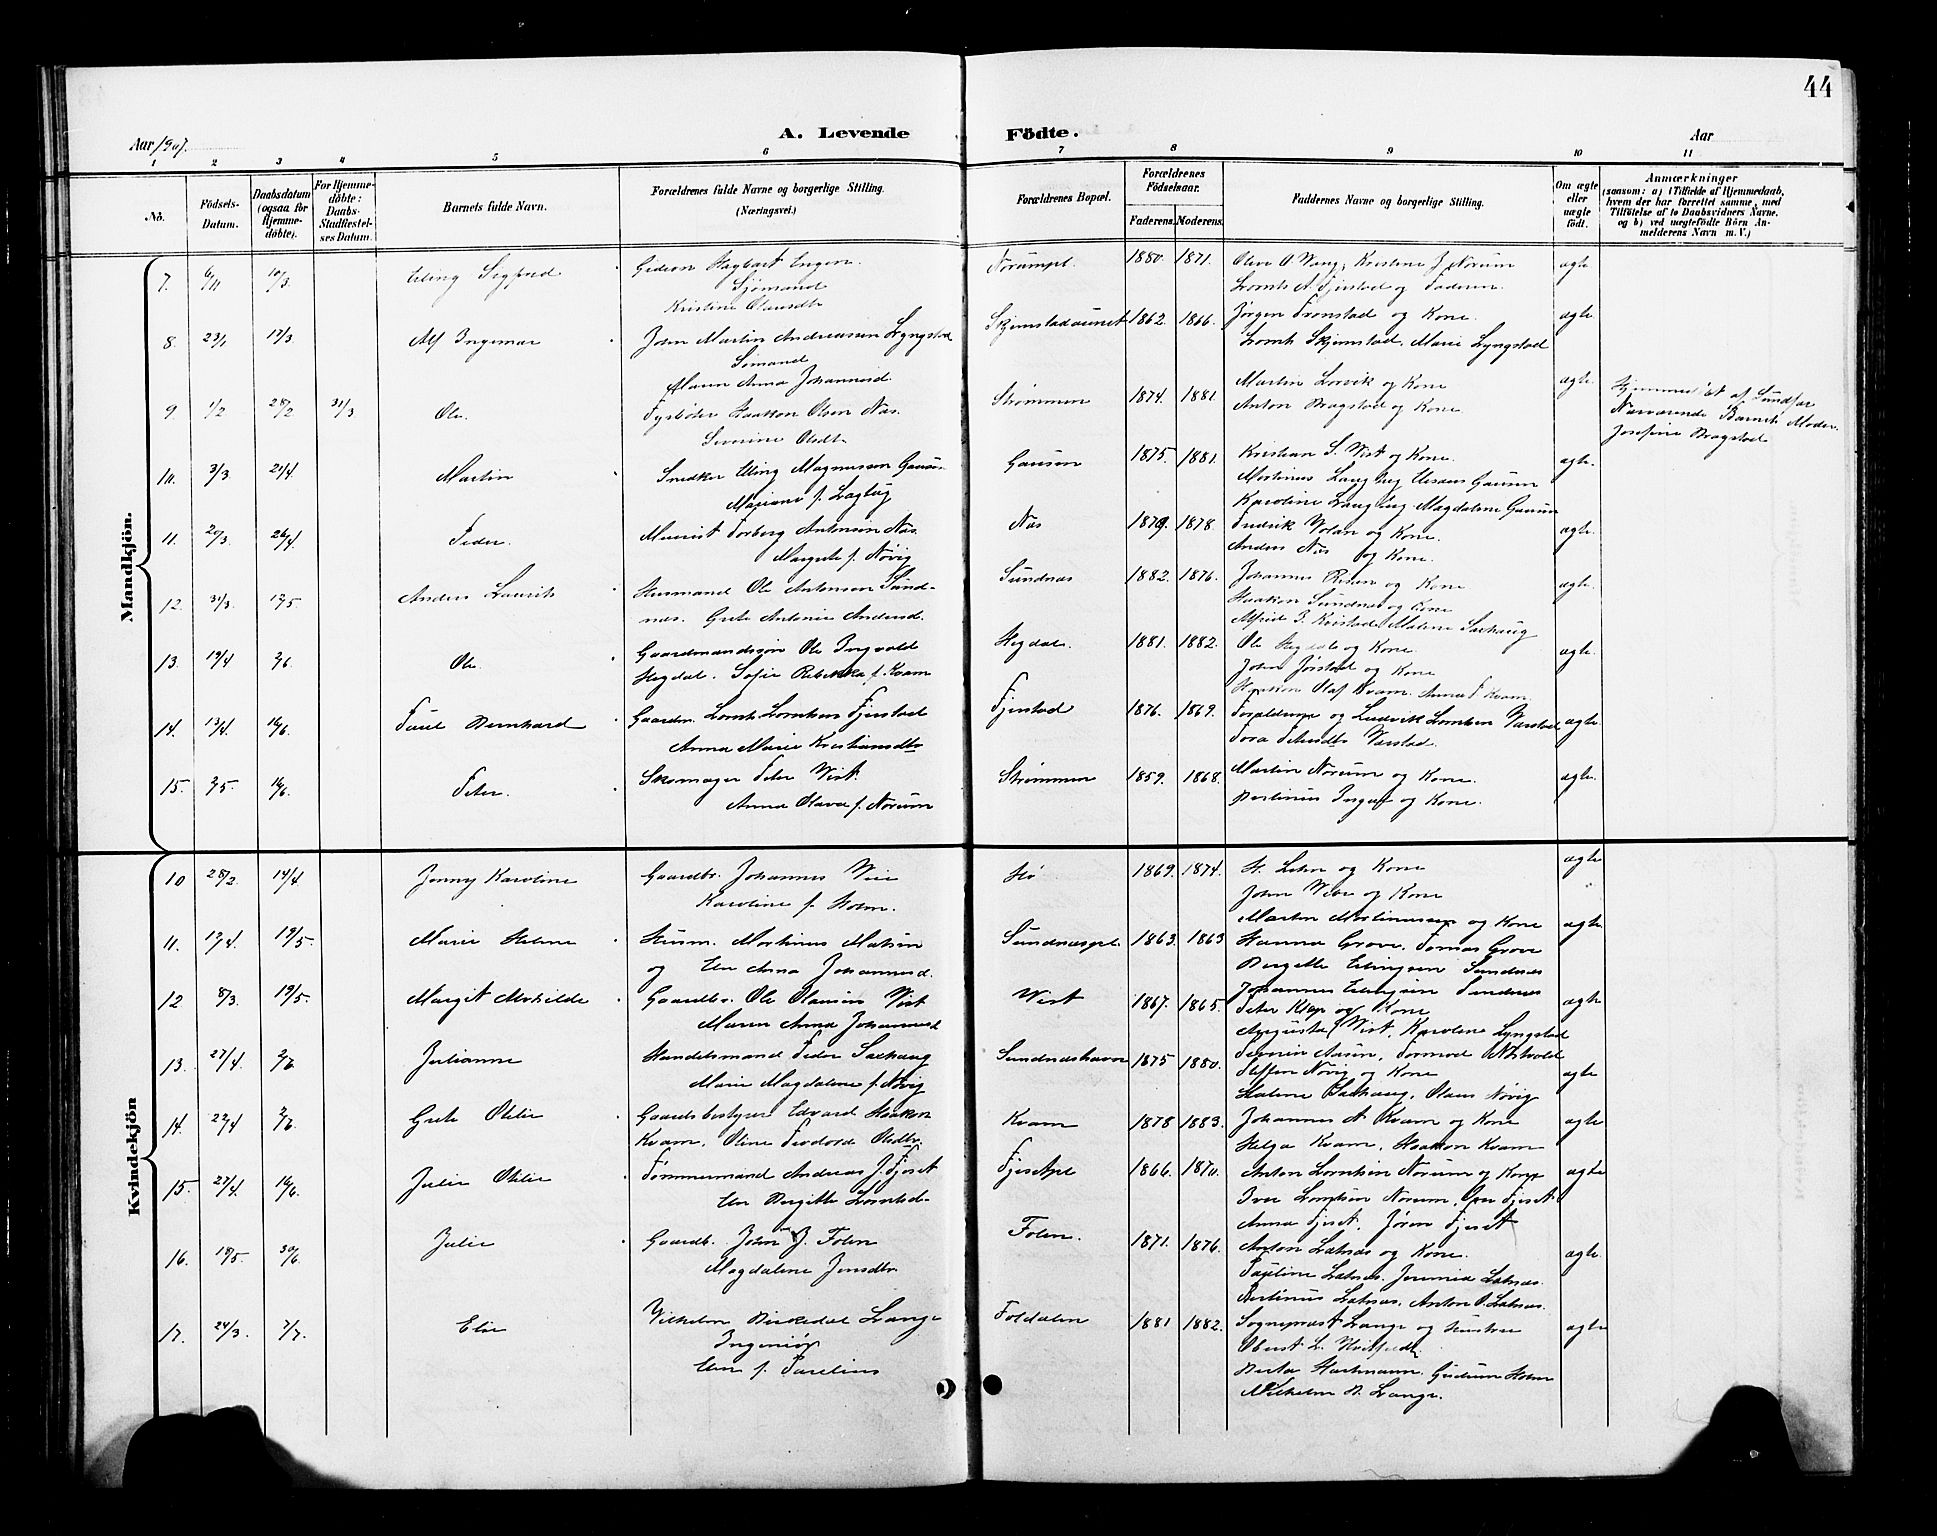 44
Aar 1907.
A. Levende Födte.
Aar
1 2 3 4 5 6 7 8 9 10 11
No.
Födsels-Datum.
Daabsdatum (ogsaa for Hjemme-döbte).
For Hjemme-döbte: Daabs-Stadfæstel-ses Datum.
Barnets fulde Navn.
Forældrenes fulde Navne og borgerlige Stilling. (Næringsvei.)
Forældrenes Bopæl.
Forældrenes Födselsaar.
Faderens. Moderens.
Faddernes Navne og borgerlige Stilling.
Om ægte eller uægte födt.
Anmærkninger
(saasom: a) i Tilfælde af Hjemmedaab, hvem der har forrettet samme, med Tilföielse af to Daabsvidners Navne, og b) ved uægtefödte Börn An-melderens Navn m. V.)
Mandkjön.
7. 6/11 10/3 Eling Sigfred
Gideon Hagbart Engen
Sjømand
Kristine Olausdtr
Norumpl. 1880. 1871.
Oline O Vang, Kristine J Norum
Lornts A. Fjerstad og Faderen
ægte
8. 23/1 17/3 Alf Ingemar
John Martin Andreassen Lyngstad
Sømand
Maren Anna Johannesd.
Skjemstadaunet 1862. 1866.
Jørgen Tronstad og Kone.
Lornts Skjemstad. Marie Lyngstad
ægte
9. 1/2 28/2 31/3 Ole.
Fyrbøter Haakon Olsen Næs.
Severine Olsdtr
Strømmen 1874. 1881.
Martin Lorvik og Kone
Anton Bragstad og Kone
ægte.
Hjemmedøbt af Sundfær
Nærværende Barnets Moder.
Josefine Bragstad
10. 3/3 21/4 Martin
Snedker Elling Magnussen Gausen
Mariane f. Lagtug
Gausen 1875. 1881.
Kristian S. Vist og Kone.
Karoline Langberg Magdalene Gausen
ægte.
11. 20/3 26/4 Peder.
Murist Torberg Antonsen Næs.
Margrete f. Nøvig
Næs 1879. 1878.
Fredrik Volan og Kone.
Anders Næs og Kone.
ægte.
12. 31/3 Anders Laurits
Husmand Ole Antonsen Sund-
næs. Grete Antonie Andersd.
Sundnæs 1882. 1876.
Haakon Sundnæs og Kone
ægte.
13. 19/4 2/6 Ole.
Gaardmandssøn Ole Ingvald
Hegdal. Sofie Rebekka f. Kvam
Hegdal. 1881. 1882.
Ole Hegdal og Kone.
John Jørstad og Kone
Haakon Olaf Kvam. Anna F Kvam.
ægte.
14. 13/4 16/6 Paul Bernhard
Gaardm. Lornts Lorntsen Fjerstad
Anna Marie Kristiansdtr
Fjerstad 1876. 1869.
Forældrene og Ludvik Lorntsen Værstad
Tora Værstad.
ægte.
15. 3/5. 16/6. Peter.
Skomager Peter Vist.
Anna Olava f. Norum
Strømmen 1859. 1868.
Martin Norum og Kone.
og Kone.
ægte.
Kvindekjön
10 28/2 14/4 Jenny Karoline
Gaardbr. Johannes Vie
Karoline f. Holm.
Hø 1869. 1874.
og Kone
John Vibe og Kone
ægte
11. 17/4. 19/5. Marie Helene
Husm. Mortinus Matsen
og Elen Anna Johannesd.
Sundnæspl. 1863. 1863
Martin Mortinussen og Kone
Hanna Grove. Tomas Grove
Bergitte Ellingsen Sundnæs
Johannes Ellingsen Sundnæs
ægte.
12 8/3. 19/5. Margit Mathilde
Gaardbr. Ole Olausen Vist
Maren Anna Johannesd
Vist 1867. 1865.
Peter Klepp og Kone
Augusta Vist. Karoline Lyngstad
ægte
13. 27/4. 2/6 Julianne
Handelsmand Peder Saxhaug
Marie Magdalene f. Nøvig
Sundnæshavn 1875 1880.
Severin Aasen, Tormod
Steffen Nøvig og Kone
Halene Saxhaug, Olaus Nøvig
ægte
14. 22/4 2/6 Grete Otelie
Gaardsbestyrer Edvard Haakon
Kvam. Oline Teodora Olsdtr.
Kvam 1878 1883.
Johannes A Kvam og Kone
Helga Kvam, Haakon Kvam
ægte
15. 27/4. 16/6. Julie Otilie
Tømmermand Andreas J. Fjeset
Elen Bergitte Lorntsd.
Fjesetpl 1866. 1870.
Anton Lorntsen Norum og Kone
Iver Lorntsen Norum, Fjeset
Anna Fjeset, Jørgen Fjeset
ægte
16. 18/5. 30/6. Julie
Gaardb. John J. Folen
Magdalene Jensdtr.
Folen. 1871. 1876.
Anton Letnæs og Kone.
Pauline Letnæs. Jeremia Letnæs.
Bertinus Letnæs. Anton O. Letnæs.
ægte.
17. 24/3. 7/7. Elie
Vilhelm Birkedal Lange
Ingeniør
Elen f. Parelius
Foldalen 1881 1882.
Sogneprest Lange og Hustru
Oberst L. Hvitfeldt.
Berta Hartmann. Gudrun Holm
Vilhelm B. Lange.
ægte